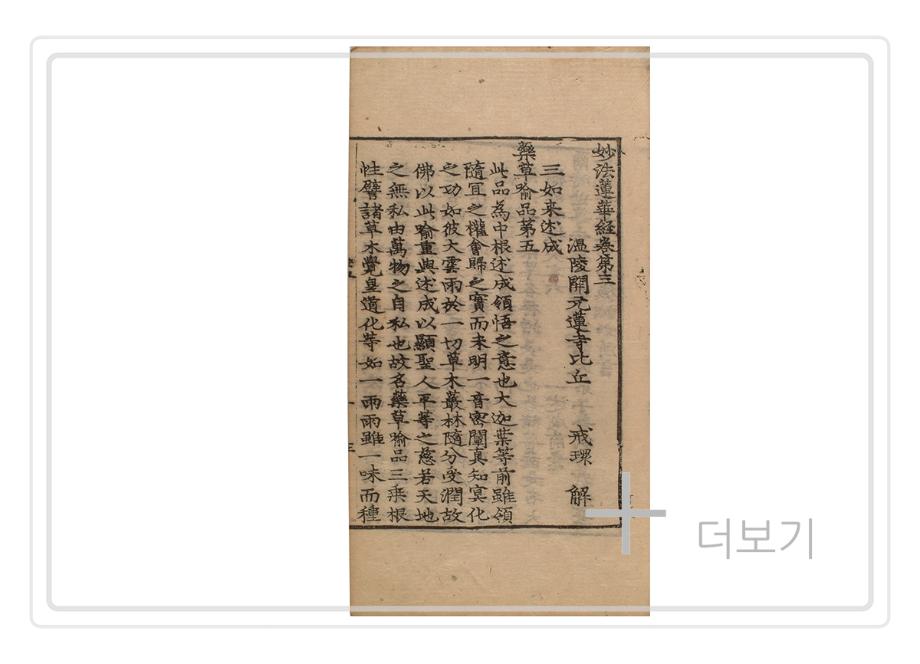 妙法蓮華經卷第三
溫陵開元蓮寺比丘 戒環 解
三如来述成
藥草喻品第五
此品為中根述成領悟之意也大迦葉等前雖領
隨宜之權會歸之實而未明一音密闡真知冥化
之功如彼大雲雨於一切草木叢林隨分受潤故
佛以此喻重與述成以顯聖人平等之慈若天地
之無私由萬物之自私也故名藥草喻品三乘根
性譬諸草木覺皇道化等如一雨雨雖一味而種
더보기